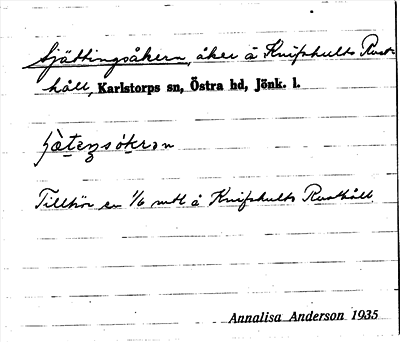 Sjättingsåkern, åker å Knifshults Rust-
håll, Karlstorps sn, Östra hd, Jönk. l.
Tillhör en 1/6 mtl å Knifshults Rusthåll.
Annalisa Anderson 1935